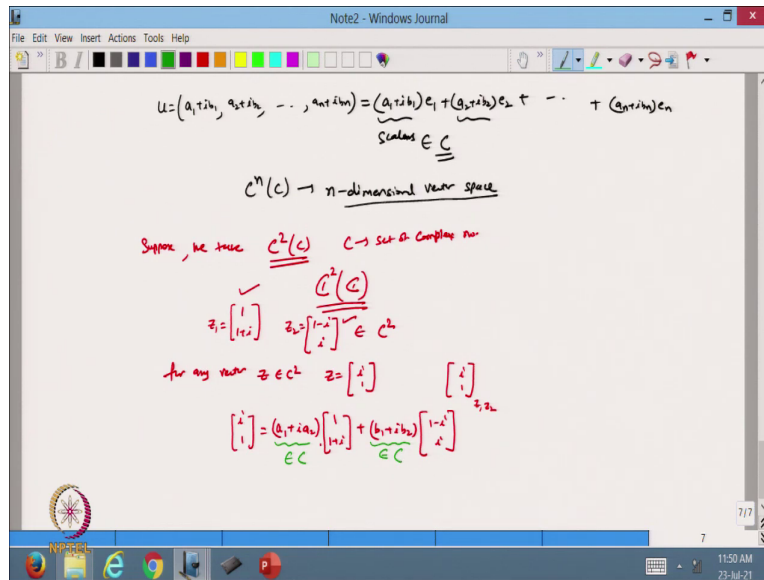 Note2 - Windows Journal
File Edit View Insert Actions Tools Help
u=(a₁+ib₁, a₂+ib₂, - - ·, aₙ+ibₙ) = (a₁+ib₁)e₁ + (a₂+ib₂)e₂ + - ·· + (aₙ+ibₙ)eₙ
Scalars ∈ C
Cⁿ(C) → n-dimensional vector space
Suppose, we take C²(C) C→ set of Complex no.
C²(C)
z₁=[1 1+i] z₂=[1-i i] ∈ C²
for any vector z ∈ C² z=[i 1] [i 1] z₁z₂
[i 1] = (a₁+ia₂).[1 1+i] + (b₁+ib₂)[1-i i]
∈ C ∈ C
7/7
7
NPTEL
11:50 AM
23-Jul-21